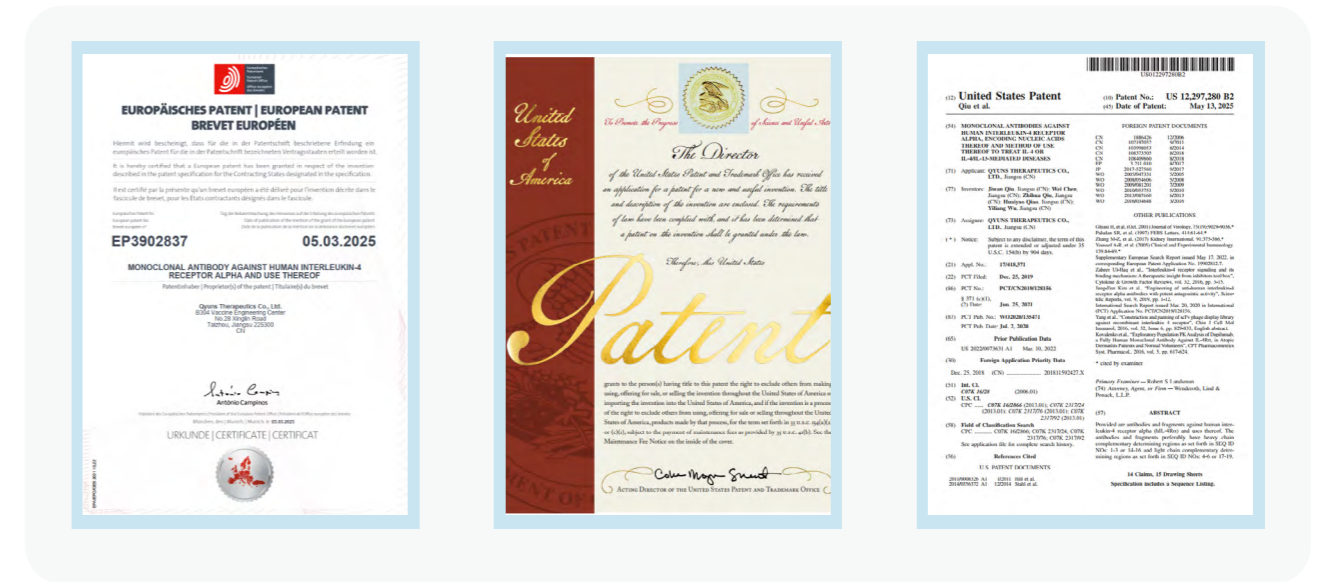 EUROPÄISCHES PATENT | EUROPEAN PATENT
BREVET EUROPÉEN
Hiermit wird bescheinigt, dass für die in der Patentschrift beschriebene Erfindung ein
europäisches Patent für die in der Patentschrift bezeichneten Vertragsstaaten erteilt worden ist.
It is hereby certified that a European patent has been granted in respect of the invention
described in the patent specification for the Contracting States designated in the specification.
Il est certifié par la présente qu'un brevet européen a été délivré pour l'invention décrite dans le
fascicule de brevet, pour les États contractants désignés dans le fascicule.
EP3902837 05.03.2025
MONOCLONAL ANTIBODY AGAINST HUMAN INTERLEUKIN-4
RECEPTOR ALPHA AND USE THEREOF
Patentinhaber | Proprietor(s) of the patent | Titulaire(s) du brevet
Qyuns Therapeutics Co., Ltd.
8304 Vaccine Engineering Center
No.28 Xinglin Road
Taizhou, Jiangsu 225300
CN
António Campinos
URKUNDE | CERTIFICATE | CERTIFICAT
United
States
of
America
To Promote the Progress of Science and Useful Arts
The Director
of the United States Patent and Trademark Office has received
an application for a patent for a new and useful invention. The title
and description of the invention are enclosed. The requirements
of law have been complied with, and it has been determined that
a patent on the invention shall be granted under the law.
Therefore, this United States
Patent
grants to the person(s) having title to this patent the right to exclude others from making
using, offering for sale, or selling the invention throughout the United States of America o
importing the invention into the United States of America, and if the invention is a process
of the right to exclude others from using, offering for sale or selling throughout the United
States of America, products made by that process, for the term set forth in 35 U.S.C. 154(a)(2
or (c)(1), subject to the payment of maintenance fees as provided by 35 U.S.C. 41(b). See the
Maintenance Fee Notice on the inside of the cover.
ACTING DIRECTOR OF THE UNITED STATES PATENT AND TRADEMARK OFFICE
US012297280B2
(12) United States Patent
Qiu et al.
(10) Patent No.: US 12,297,280 B2
(45) Date of Patent: May 13, 2025
(54) MONOCLONAL ANTIBODIES AGAINST
HUMAN INTERLEUKIN-4 RECEPTOR
ALPHA, ENCODING NUCLEIC ACIDS
THEREOF AND METHOD OF USE
THEREOF TO TREAT IL-4 OR
IL-4/IL-13-MEDIATED DISEASES
(71) Applicant: QYUNS THERAPEUTICS CO.,
LTD., Jiangsu (CN)
(72) Inventors: Jiwan Qiu, Jiangsu (CN); Wei Chen,
Jiangsu (CN); Zhihua Qiu, Jiangsu
(CN); Huaiyao Qiao, Jiangsu (CN);
Yiliang Wu, Jiangsu (CN)
(73) Assignee: QYUNS THERAPEUTICS CO.,
LTD., Jiangsu (CN)
(*) Notice: Subject to any disclaimer, the term of this
patent is extended or adjusted under 35
U.S.C. 154(b) by 904 days.
(21) Appl. No.: 17/418,571
(22) PCT Filed: Dec. 25, 2019
(86) PCT No.: PCT/CN2019/128156
§ 371 (c)(1),
(2) Date: Jun. 25, 2021
(87) PCT Pub. No.: WO2020/135471
PCT Pub. Date: Jul. 2, 2020
(65) Prior Publication Data
US 2022/0073631 A1 Mar. 10, 2022
(30) Foreign Application Priority Data
Dec. 25, 2018 (CN) 201811592427.X
(51) Int. Cl.
C07K 16/28 (2006.01)
(52) U.S. Cl.
CPC C07K 16/2866 (2013.01); C07K 2317/24
(2013.01); C07K 2317/76 (2013.01); C07K
2317/92 (2013.01)
(58) Field of Classification Search
CPC C07K 16/2866; C07K 2317/24; C07K
2317/76; C07K 2317/92
See application file for complete search history.
(56) References Cited
U.S. PATENT DOCUMENTS
FOREIGN PATENT DOCUMENTS
OTHER PUBLICATIONS
* cited by examiner
Primary Examiner — Robert S Landsman
(74) Attorney, Agent, or Firm — Wenderoth, Lind &
Ponack, L.L.P.
(57) ABSTRACT
Provided are antibodies and fragments against human inter-
leukin-4 receptor alpha (hIL-4Rα) and uses thereof. The
antibodies and fragments preferably have heavy chain
complementary determining regions as set forth in SEQ ID
NOs: 1-3 or 14-16 and light chain complementary deter-
mining regions as set forth in SEQ ID NOs: 4-6 or 17-19.
14 Claims, 15 Drawing Sheets
Specification includes a Sequence Listing.